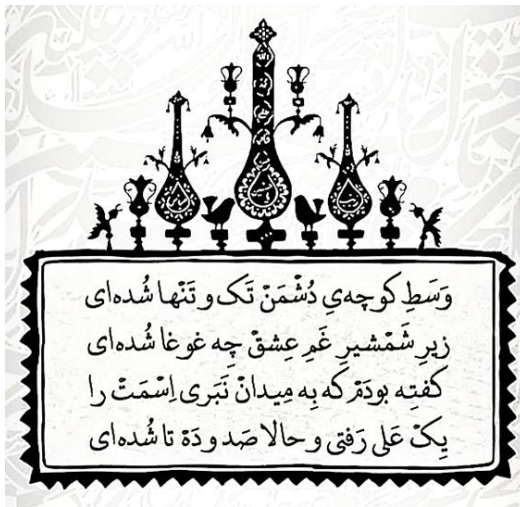 وَسَطِ کوچه‌یِ دُشْمَنْ تَک و تَنْها شُده‌ای
زیرِ شَمْشیرِ غَمِ عِشقْ چِه غوغا شُده‌ای
گفتِه بودَمْ که بِه مِیدانْ نَبَری اِسْمَتْ را
یِکْ عَلی رَفتی و حالا صَد و دَهْ تا شُده‌ای